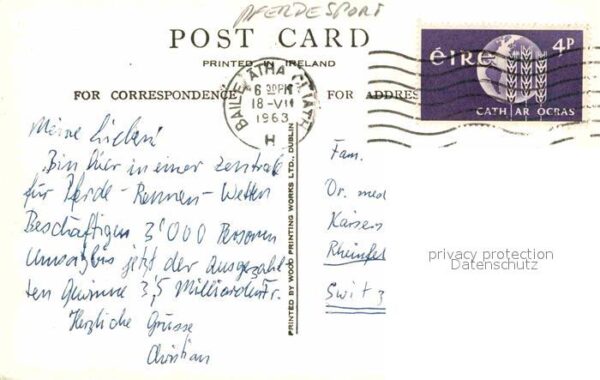 PFERDESPORT
POST CARD
PRINTED IN IRELAND
FOR CORRESPONDENCE
FOR ADDRES
BAILE ÁTHA CLIATH
6 30PM
18-VII
1963
H
éIRe 4P
CATH AR OCRAS
Meine Lieben!
Bin hier in einer Zentrale
für Pferde-Rennen-Wetten
Beschäftigen 3'000 Personen
Umsatz bis jetzt der ausgezahl-
ten Gewinne 3,5 Milliarden Fr.
Herzliche Grüsse
Christian
PRINTED BY WOOD PRINTING WORKS LTD., DUBLIN
Fam.
Dr. med
Kaisers
Rheinfel
Switz
privacy protection
Datenschutz